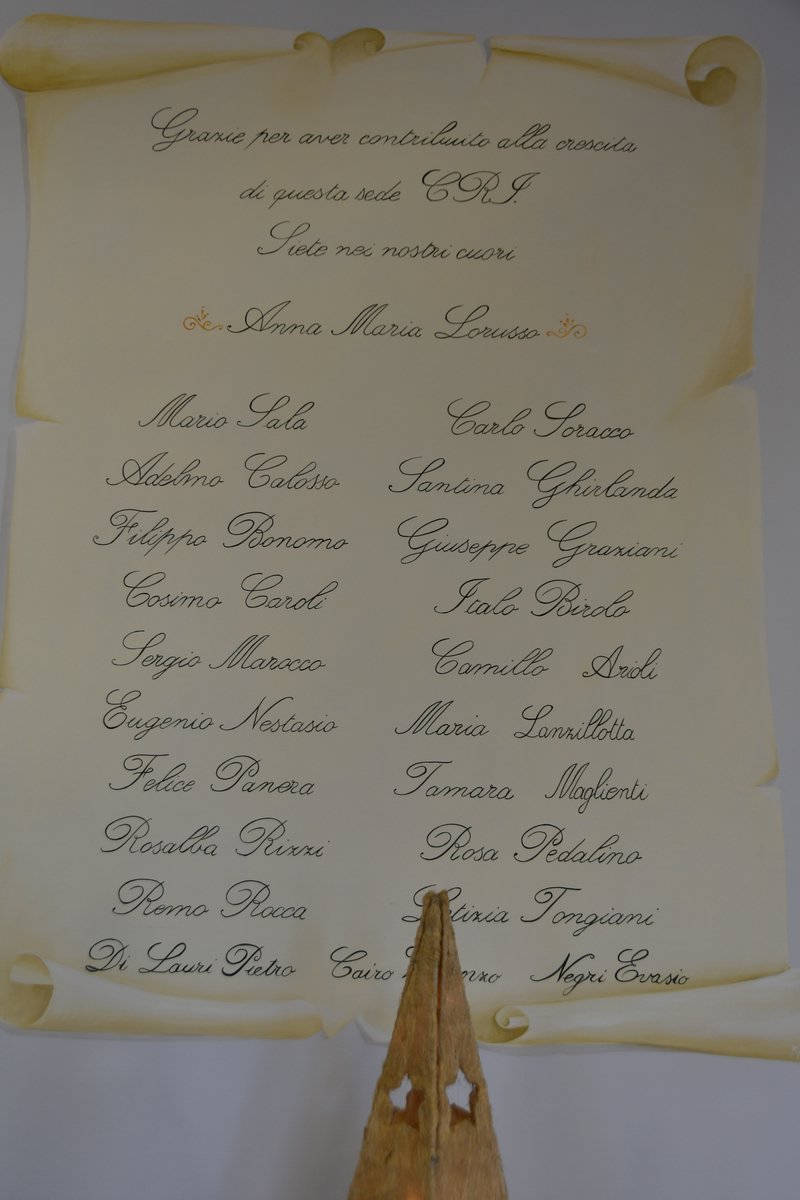 Grazie per aver contribuito alla crescita
di questa sede C.R.I.
Siete nei nostri cuori
Anna Maria Lorusso
Mario Sala Carlo Soracco
Adelmo Calosso Santina Ghirlanda
Filippo Bonomo Giuseppe Graziani
Cosimo Caroli Italo Birolo
Sergio Marocco Camillo Arioli
Eugenio Nestasio Maria Lanzillotta
Felice Panera Tamara Maglienti
Rosalba Rizzi Rosa Pedalino
Remo Rocca Letizia Tongiani
Di Lauri Pietro Cairo Negri Evasio